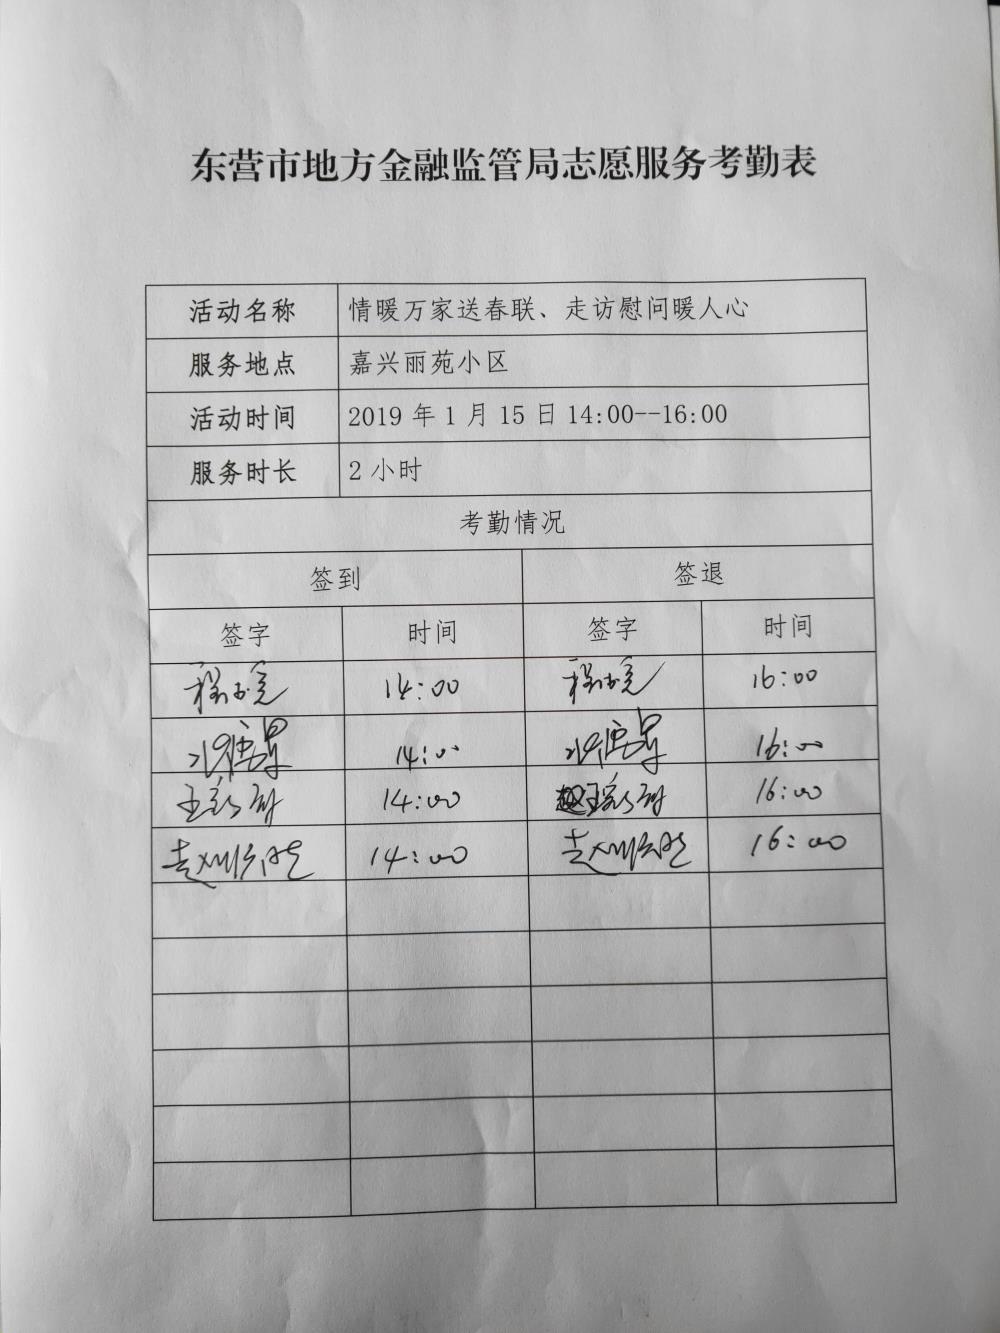 东营市地方金融监管局志愿服务考勤表
活动名称 情暖万家送春联、走访慰问暖人心
服务地点 嘉兴丽苑小区
活动时间 2019 年 1 月 15 日 14:00--16:00
服务时长 2 小时
考勤情况
签到 签退
签字 时间 签字 时间
14:00 16:00
14:00 16:00
14:00 16:00
14:00 16:00